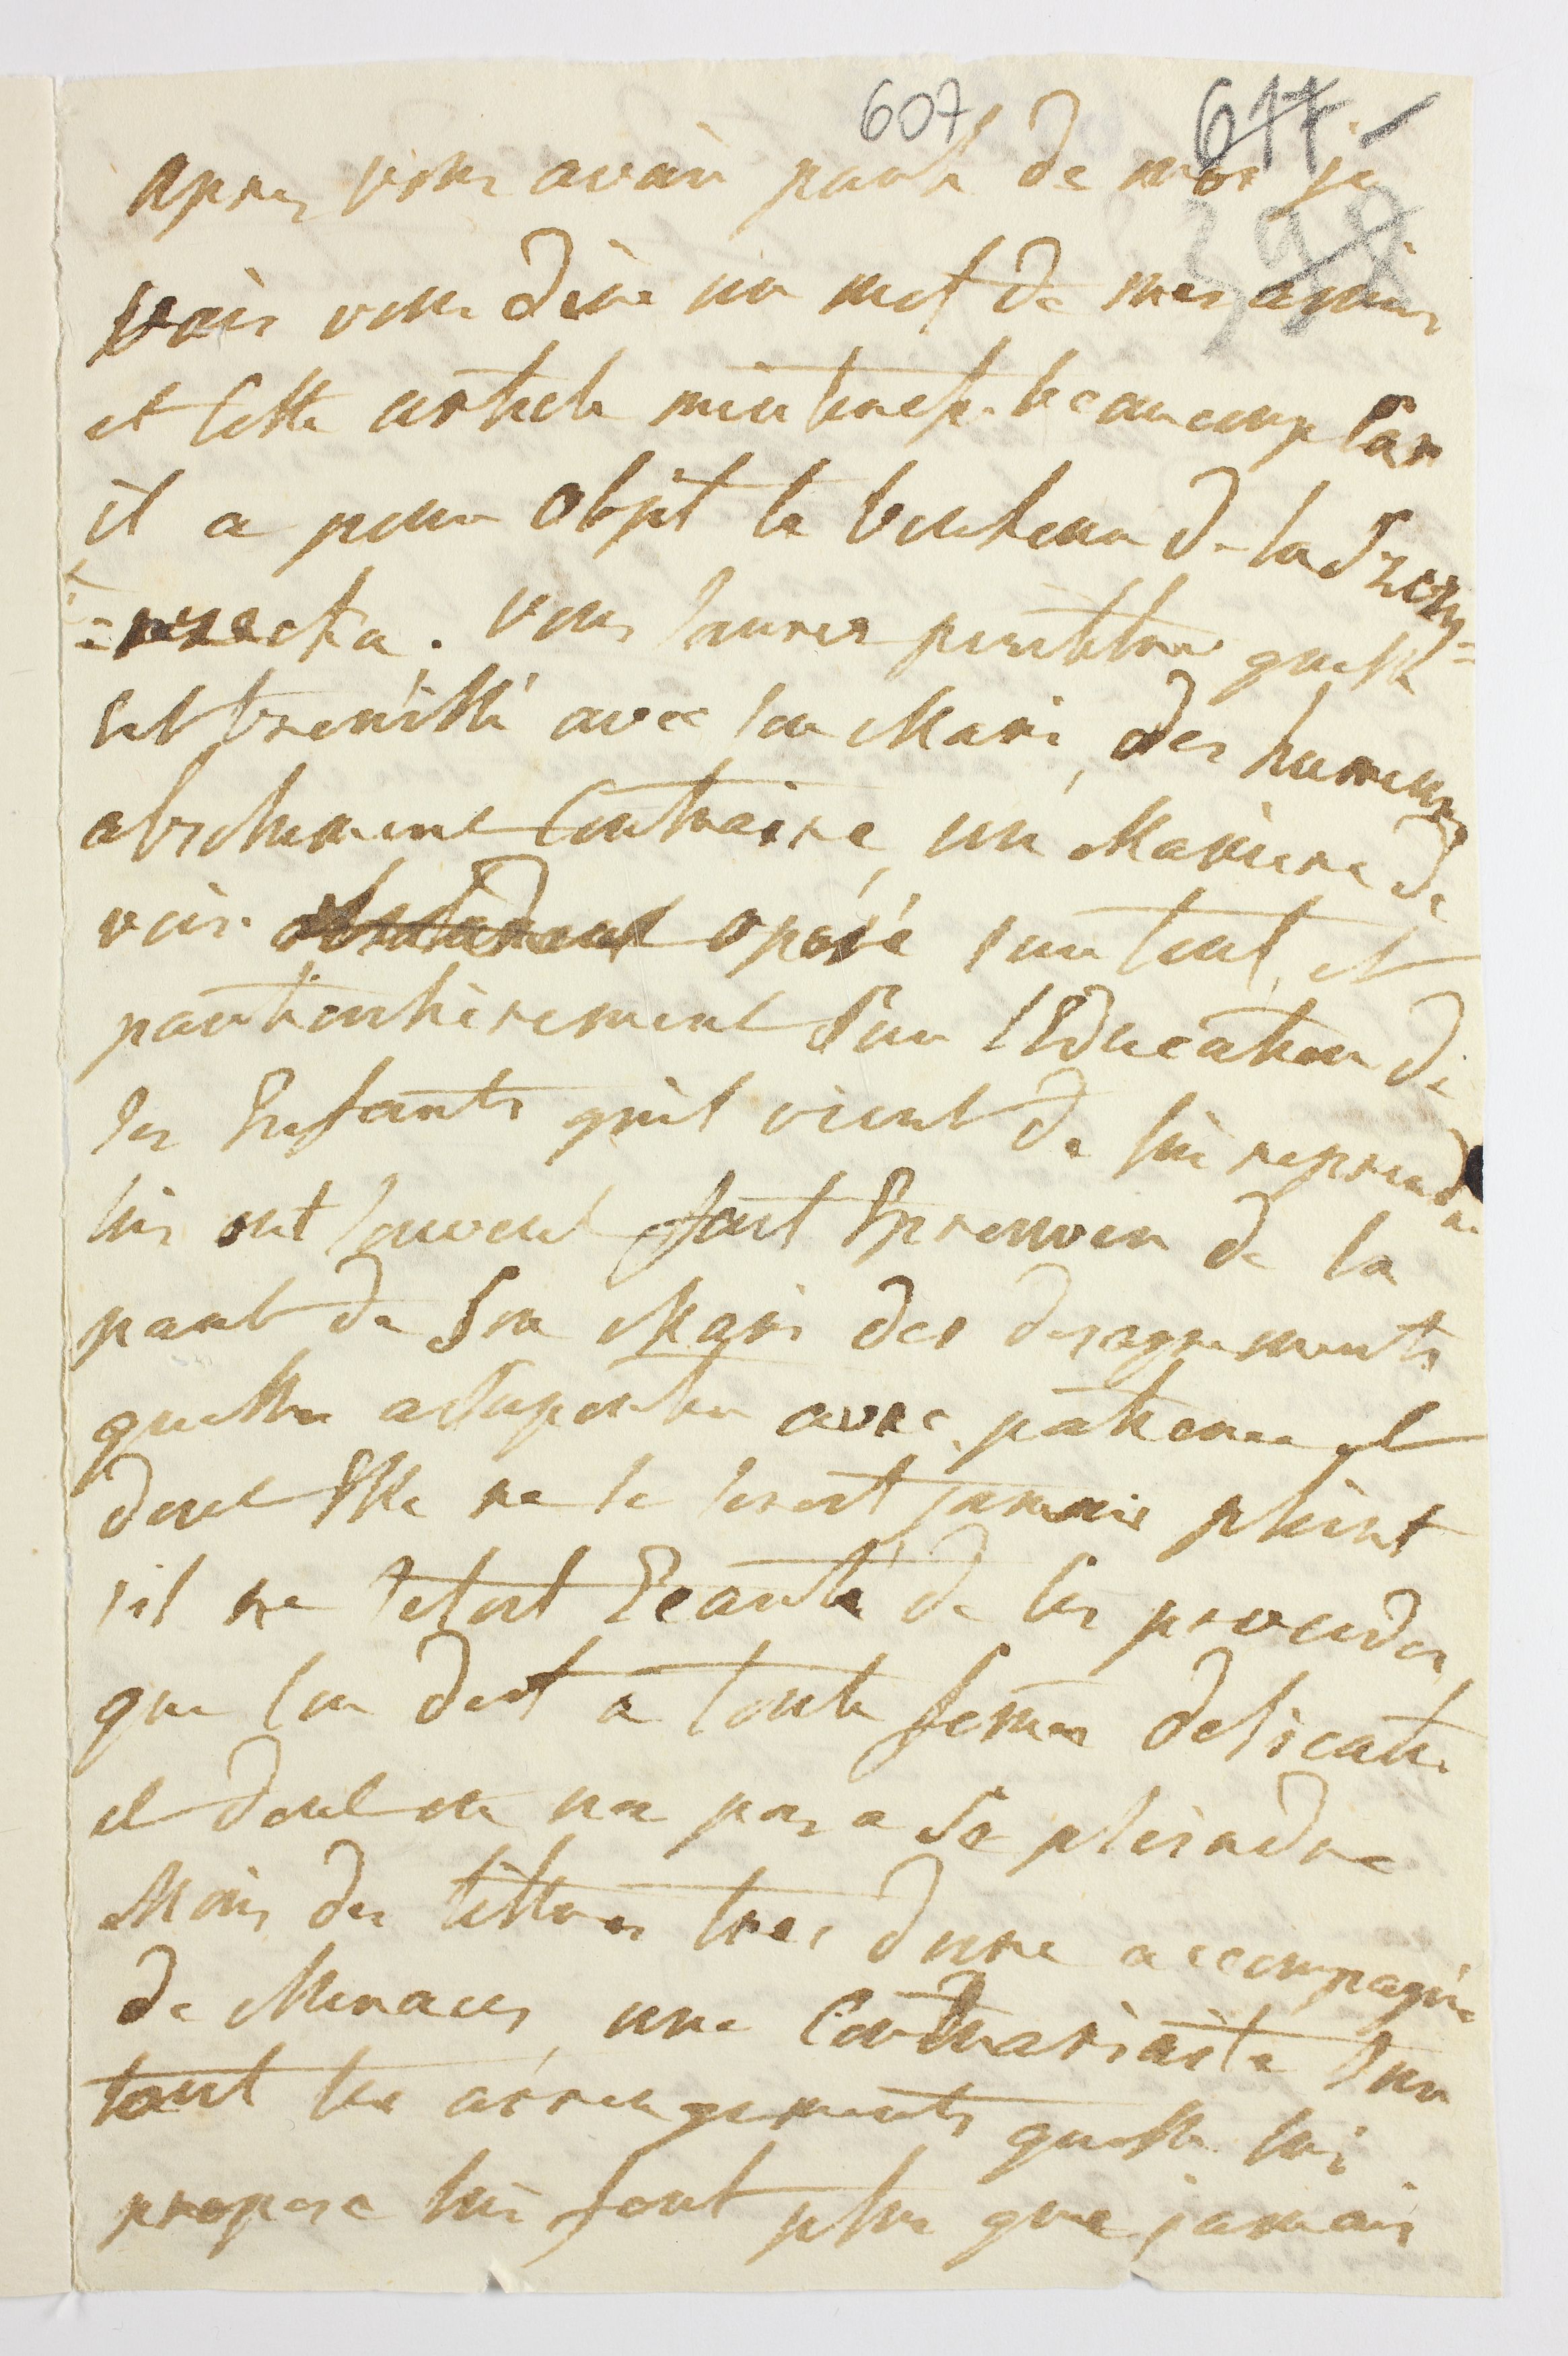 607 617
398
apres vous avoir parlé de moi je
vais vous dire un mot de mes amies
et cette article m'interesse beaucoup car
il a pour objet le bonheur de la
vous saurez peutetre quelle
est brouillé avec son Mari, des humeurs
absolument Contraire, un Maniere de
voir absolument oposé sur tout, et
particulièrement sur l'Education de
ses Enfants qu'il vient de lui reprendre
lui ont souvent fait Eprouver de la
part de son Mari des desagrements
quelle a suporter avec patience et
dont Elle ne se seroit jamais plaint
s'il ne s'etoit Ecarté de ces procedes
que l'on doit a toute femme delicate
et dont on na pas a se pleindre
Mais des lettres tres dure accompagné
de Menaces, une Contrariaité sur
tout les arrengements quelle lui
propose lui font plus que jamais